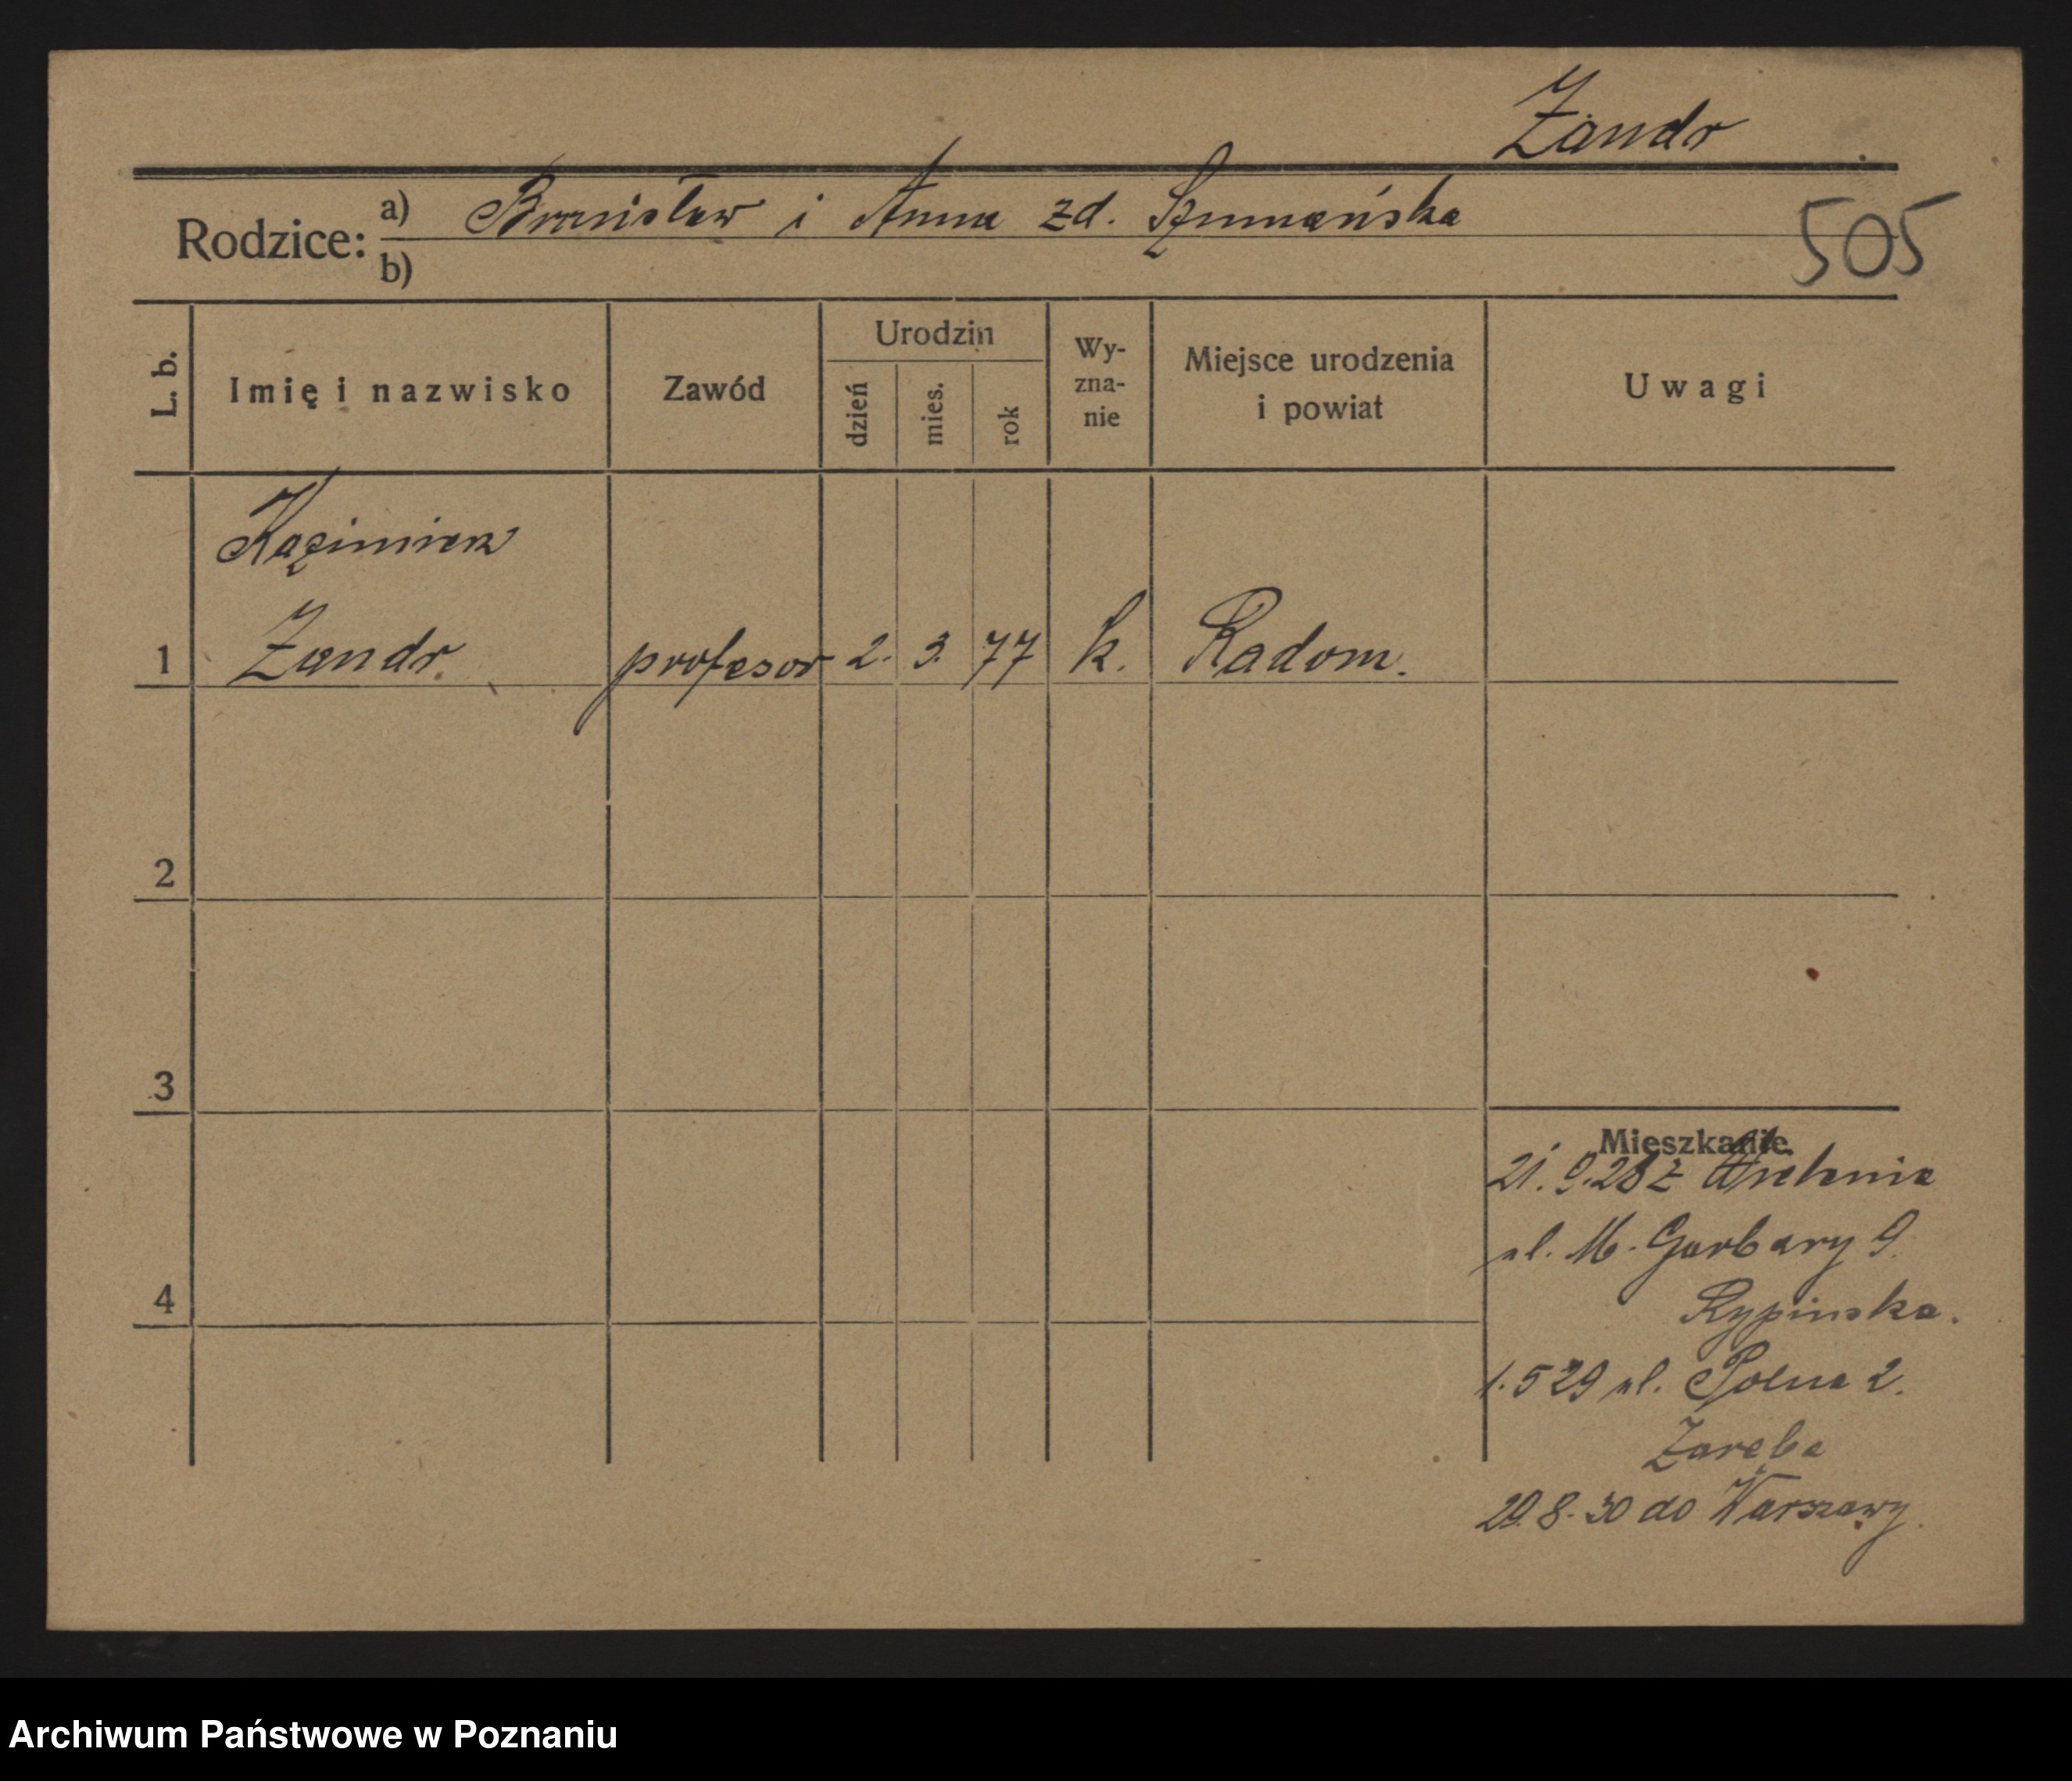 Żandr
Rodzice: a) Bronisław i Anna zd. Szumańska
b)
505
L. b.
Imię i nazwisko
Zawód
Urodzin
dzień
mies.
rok
Wy-
zna-
nie
Miejsce urodzenia
i powiat
Uwagi
Kazimierz
1 Żandr profesor 2. 3. 77 k. Radom.
2
3
Mieszkanie
21.9.28 z
ul. M. Garbary 9.
4
Rypinska.
1.5 29 ul. Polna 2.
Zaręba
29.8.30 do Warszawy.
Archiwum Państwowe w Poznaniu